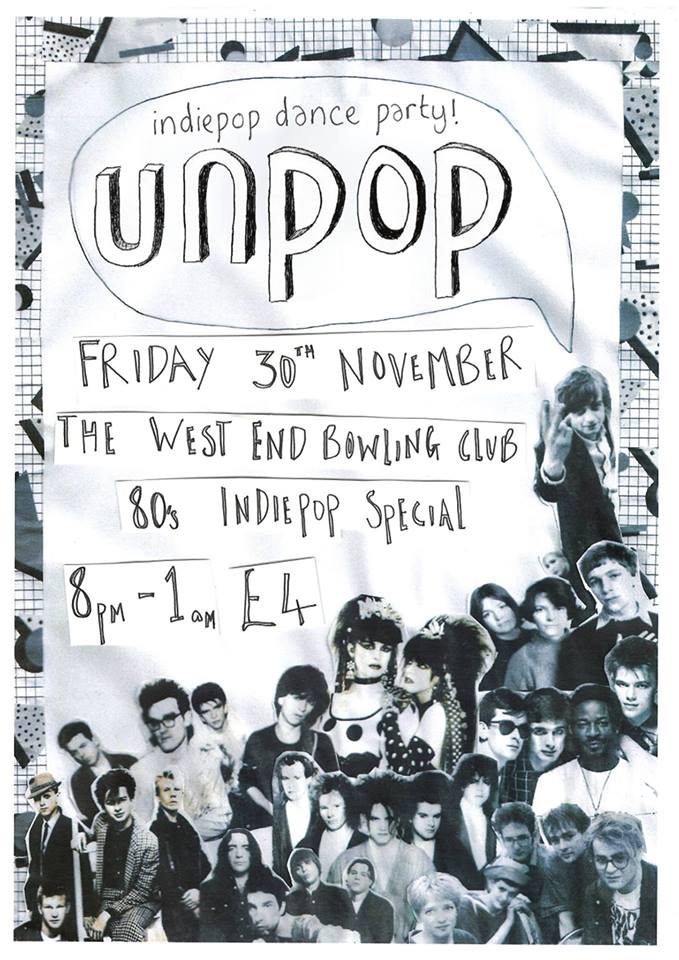 indiepop dance party!
unpop
FRIDAY 30TH NOVEMBER
THE WEST END BOWLING CLUB
80's INDIEPOP SPECIAL
8pm - 1am £4